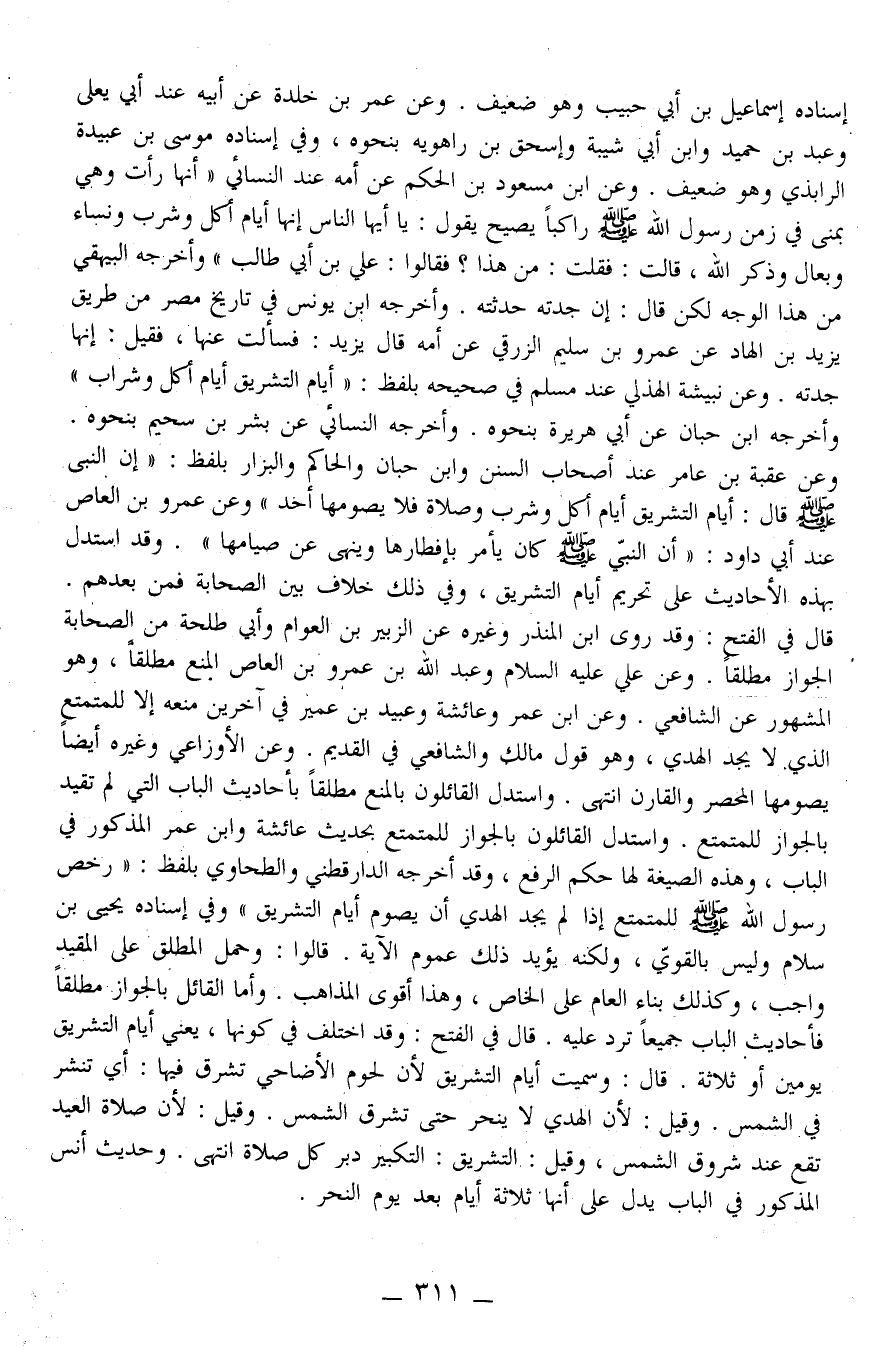 إسناده إسماعيل بن أبي حبيب وهو ضعيف . وعن عمر بن خلدة عن أبيه عند أبي يعلى
وعبد بن حميد وابن أبي شيبة وإسحق بن راهويه بنحوه ، وفي إسناده موسى بن عبيدة
الرابذي وهو ضعيف . وعن ابن مسعود بن الحكم عن أمه عند النسائي « أنها رأت وهي
بمنى في زمن رسول الله ﷺ راكباً يصيح يقول : يا أيها الناس إنها أيام أكل وشرب ونساء
وبعال وذكر الله ، قالت : فقلت : من هذا ؟ فقالوا : علي بن أبي طالب » وأخرجه البيهقي
من هذا الوجه لكن قال : إن جدته حدثته . وأخرجه ابن يونس في تاريخ مصر من طريق
يزيد بن الهاد عن عمرو بن سليم الزرقي عن أمه قال يزيد : فسألت عنها ، فقيل : إنها
جدته . وعن نبيشة الهذلي عند مسلم في صحيحه بلفظ : « أيام التشريق أيام أكل وشراب »
وأخرجه ابن حبان عن أبي هريرة بنحوه . وأخرجه النسائي عن بشر بن سحيم بنحوه .
وعن عقبة بن عامر عند أصحاب السنن وابن حبان والحاكم والبزار بلفظ : « إن النبى
ﷺ قال : أيام التشريق أيام أكل وشرب وصلاة فلا يصومها أحد » وعن عمرو بن العاص
عند أبي داود : « أن النبيّ ﷺ كان يأمر بإفطارها وينهى عن صيامها » . وقد استدل
بهذه الأحاديث على تحريم أيام التشريق ، وفي ذلك خلاف بين الصحابة فمن بعدهم .
قال في الفتح : وقد روى ابن المنذر وغيره عن الزبير بن العوام وأبي طلحة من الصحابة
الجواز مطلقاً . وعن علي عليه السلام وعبد الله بن عمرو بن العاص المنع مطلقاً ، وهو
المشهور عن الشافعي . وعن ابن عمر وعائشة وعبيد بن عمير في آخرين منعه إلا للمتمتع
الذي لا يجد الهدي ، وهو قول مالك والشافعي في القديم . وعن الأوزاعي وغيره أيضاً
يصومها المحصر والقارن انتهى . واستدل القائلون بالمنع مطلقاً بأحاديث الباب التي لم تقيد
بالجواز للمتمتع . واستدل القائلون بالجواز للمتمتع بحديث عائشة وابن عمر المذكور في
الباب ، وهذه الصيغة لها حكم الرفع ، وقد أخرجه الدارقطني والطحاوي بلفظ : « رخص
رسول الله ﷺ للمتمتع إذا لم يجد الهدي أن يصوم أيام التشريق » وفي إسناده يحيى بن
سلام وليس بالقويّ ، ولكنه يؤيد ذلك عموم الآية . قالوا : وحمل المطلق على المقيد
واجب ، وكذلك بناء العام على الخاص ، وهذا أقوى المذاهب . وأما القائل بالجواز مطلقاً
فأحاديث الباب جميعاً ترد عليه . قال في الفتح : وقد اختلف في كونها ، يعني أيام التشريق
يومين أو ثلاثة . قال : وسميت أيام التشريق لأن لحوم الأضاحي تشرق فيها : أي تنشر
في الشمس . وقيل : لأن الهدي لا ينحر حتى تشرق الشمس . وقيل : لأن صلاة العيد
تقع عند شروق الشمس ، وقيل : التشريق : التكبير دبر كل صلاة انتهى . وحديث أنس
المذكور في الباب يدل على أنها ثلاثة أيام بعد يوم النحر .
ــ ٣١١ ــ